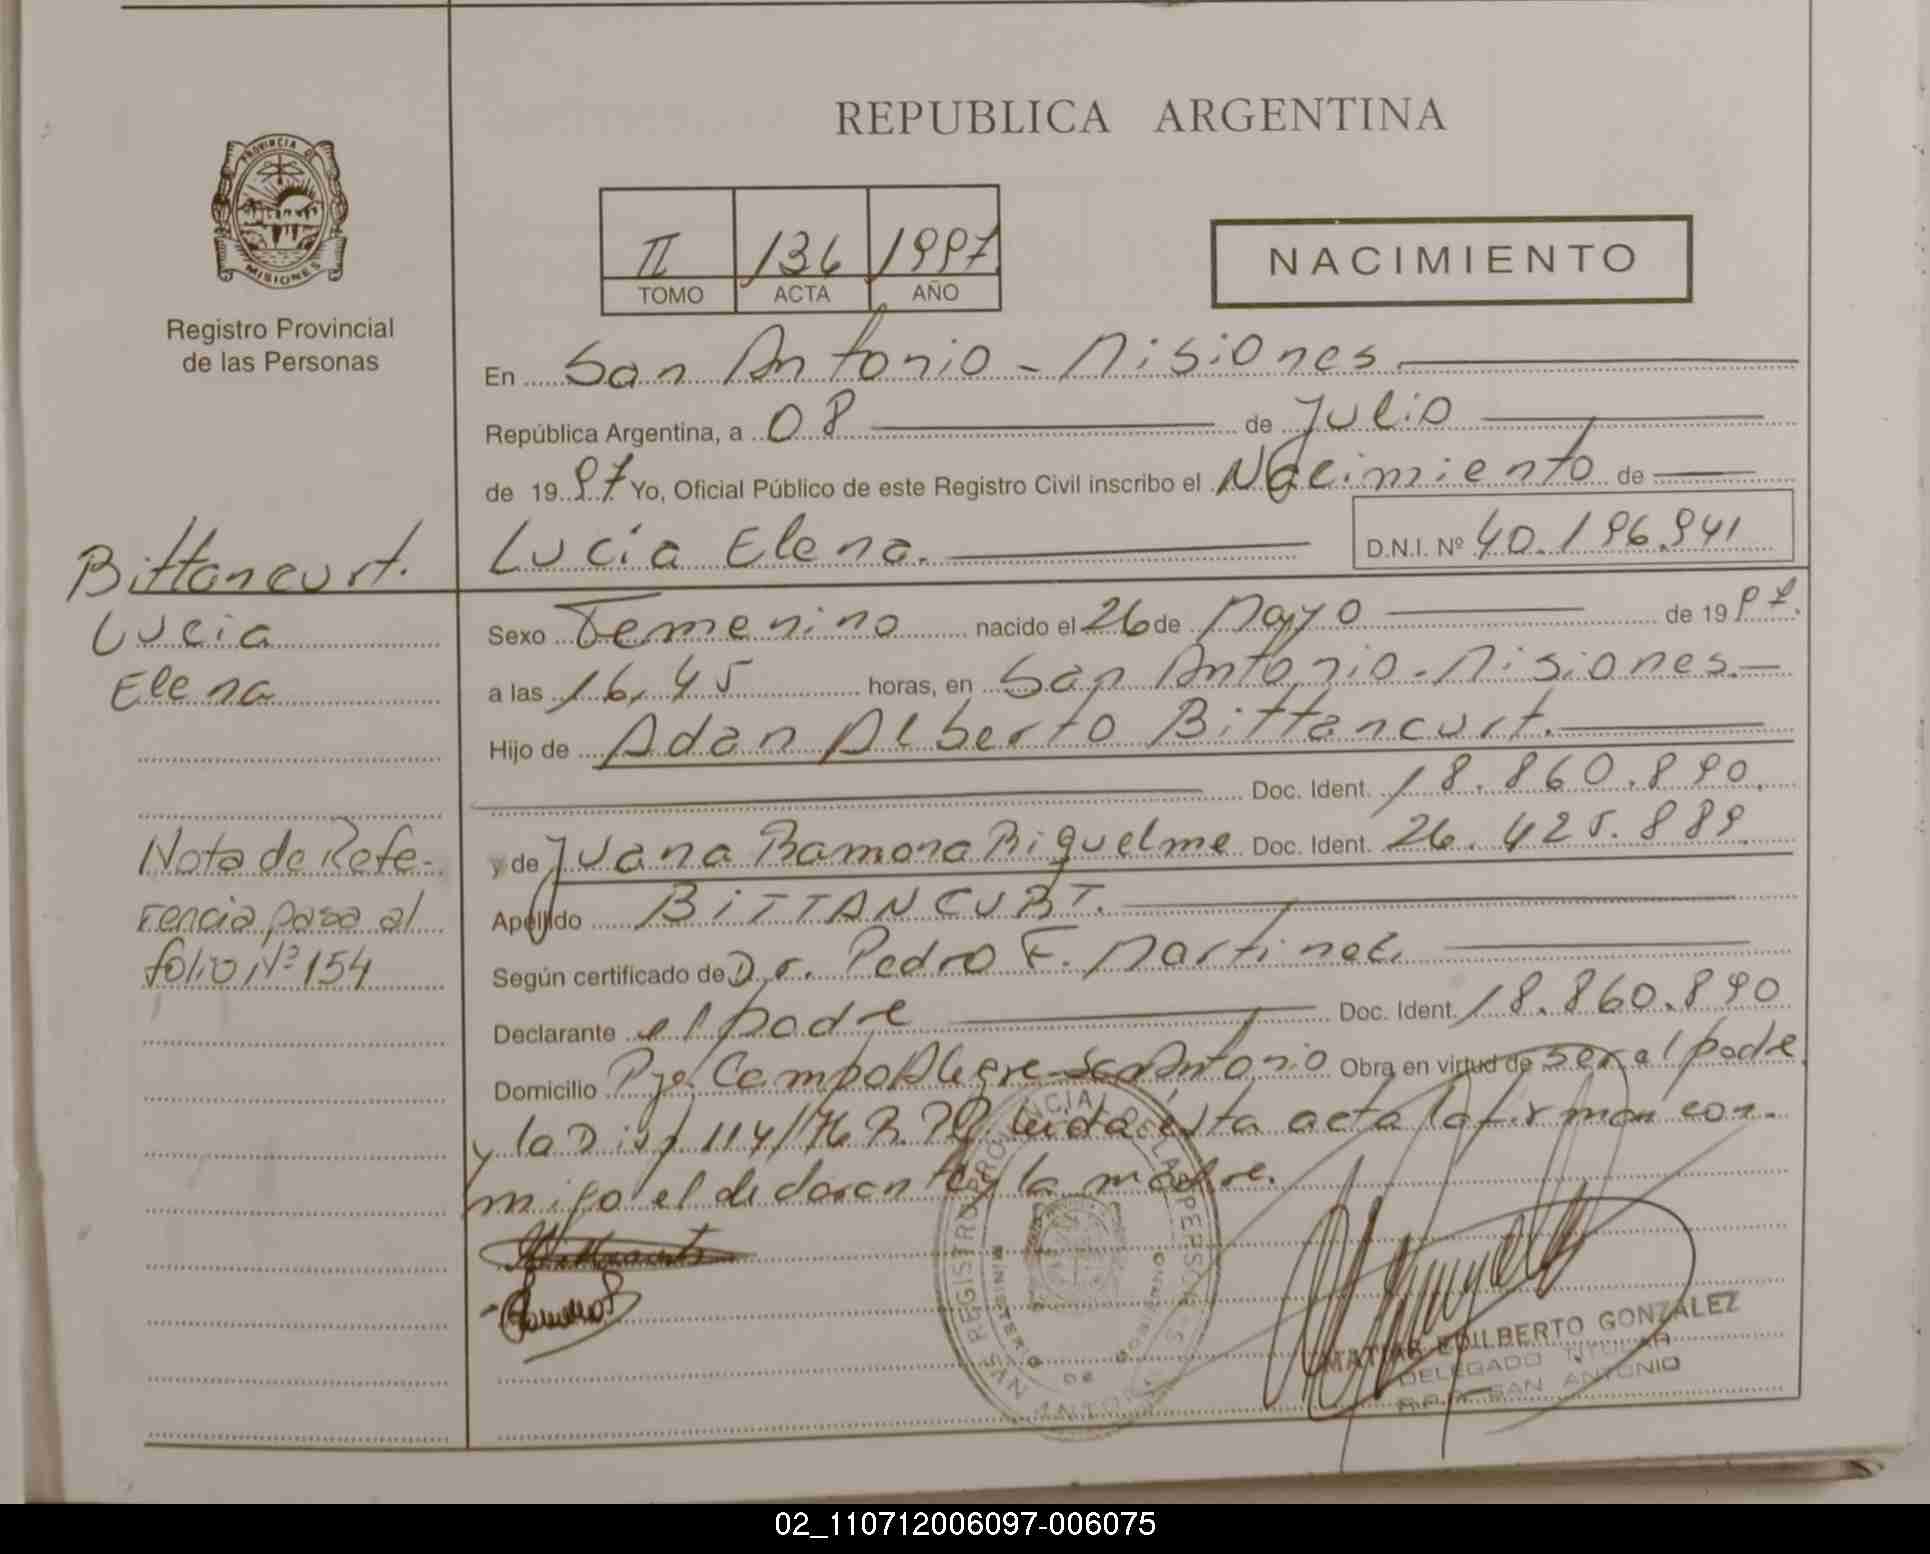 REPUBLICA ARGENTINA
PROVINCIA DE
MISIONES
Registro Provincial
de las Personas
II 136 1997
TOMO ACTA AÑO
NACIMIENTO
En San Antonio - Misiones
República Argentina, a 08 de Julio
de 1997 Yo, Oficial Público de este Registro Civil inscribo el Nacimiento de
Lucía Elena. D.N.I. Nº 40.196.941
Bittancurt.
Lucia
Elena
Sexo Femenino nacido el 26 de Mayo de 1997.
a las 16,45 horas, en San Antonio - Misiones.
Hijo de Adan Alberto Bittancurt.
Doc. Ident. 18.860.890.
y de Juana Ramona Riquelme Doc. Ident. 26.425.889
Nota de Refe-
rencia pasa al
folio Nº 154
Apellido BITTANCURT.
Según certificado de Dr. Pedro F. Martinez.
Declarante el padre Doc. Ident. 18.860.890
Domicilio Pje. Campo Alegre - San Antonio Obra en virtud de ser el padre
y la Disp 114/76 Leida esta acta la firman con-
migo el declarante y la madre.
REGISTRO PROVINCIAL DE LAS PERSONAS
MINISTERIO DE GOBIERNO
MATIAS EDILBERTO GONZALEZ
DELEGADO TITULAR
R.P.P. SAN ANTONIO
02_110712006097-006075